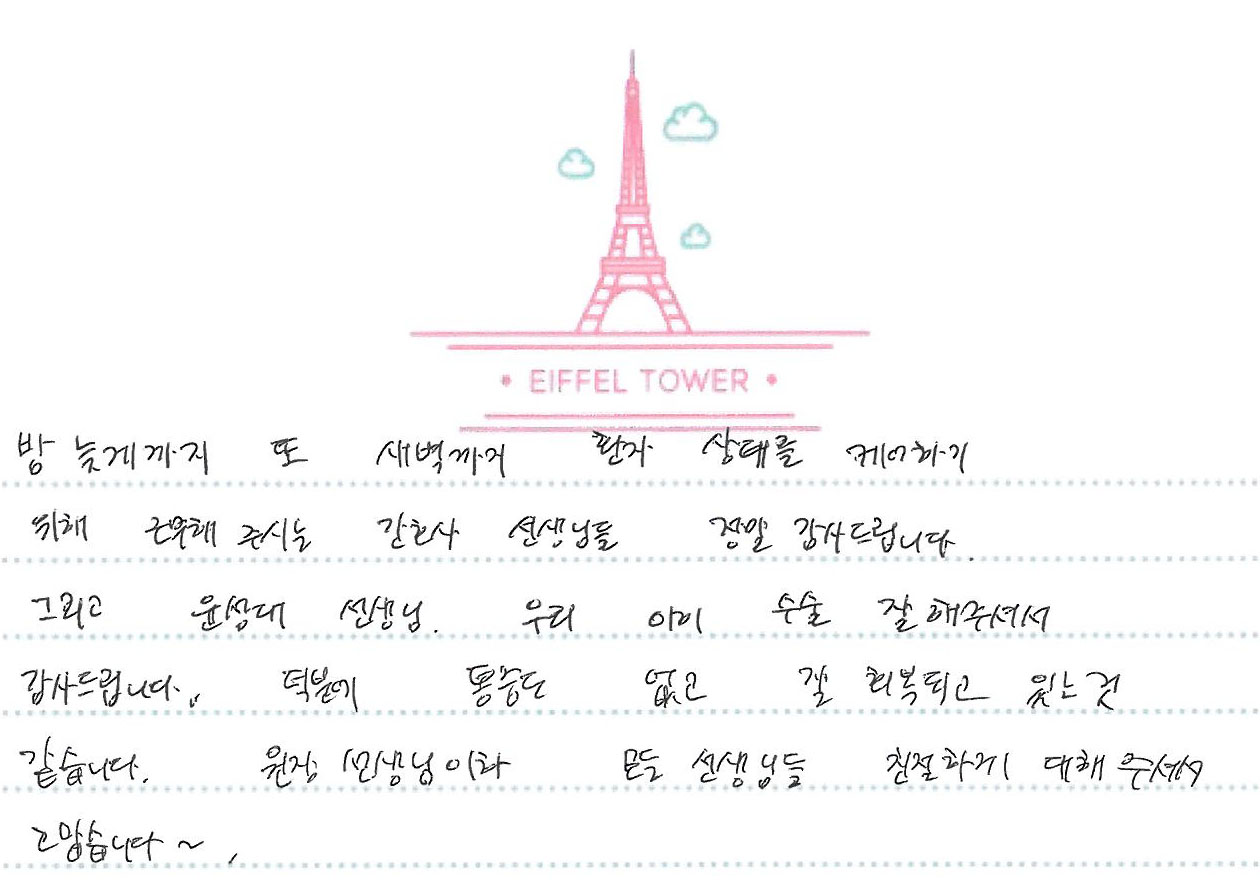 • EIFFEL TOWER •
밤 늦게까지 또 새벽까지 환자 상태를 케어하기
위해 근무해 주시는 간호사 선생님들 정말 감사드립니다.
그리고 윤성대 선생님. 우리 아이 수술 잘 해주셔서
감사드립니다.. 덕분에 통증도 없고 잘 회복되고 있는것
같습니다. 원장 선생님이하 모든 선생님들 친절하게 대해 주셔서
고맙습니다~,